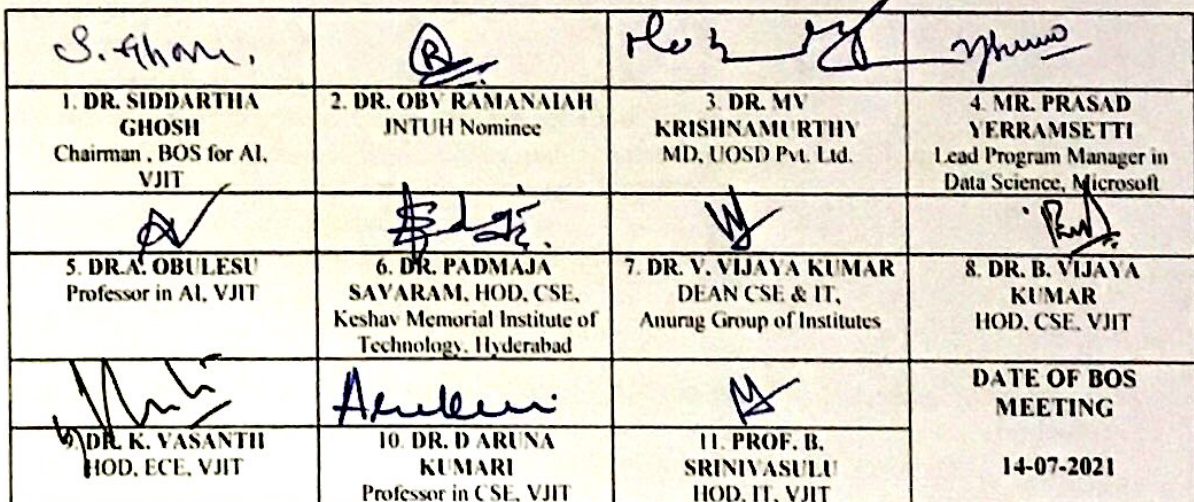 S. Ghosh.
R
1. DR. SIDDARTHA
GHOSH
Chairman , BOS for AI,
VJIT
2. DR. OBV RAMANAIAH
JNTUH Nominee
3. DR. MV
KRISHNAMURTHY
MD, UOSD Pvt. Ltd.
4. MR. PRASAD
YERRAMSETTI
Lead Program Manager in
Data Science, Microsoft
5. DR.A. OBULESU
Professor in AI, VJIT
6. DR. PADMAJA
SAVARAM, HOD, CSE,
Keshav Memorial Institute of
Technology, Hyderabad
7. DR. V. VIJAYA KUMAR
DEAN CSE & IT,
Anurag Group of Institutes
8. DR. B. VIJAYA
KUMAR
HOD, CSE, VJIT
DR. K. VASANTH
HOD, ECE, VJIT
10. DR. D ARUNA
KUMARI
Professor in CSE, VJIT
11. PROF. B.
SRINIVASULU
HOD, IT, VJIT
DATE OF BOS
MEETING
14-07-2021